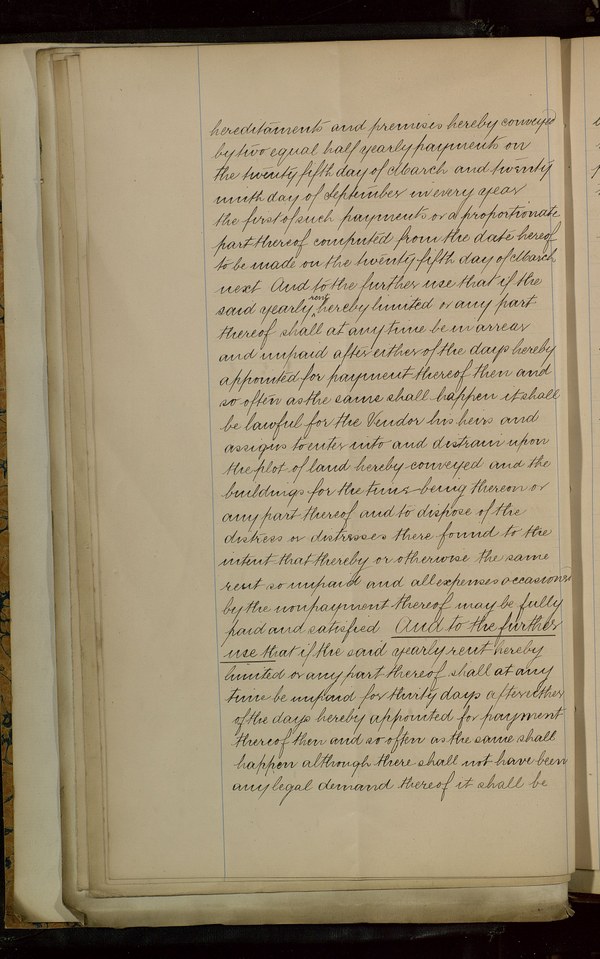 hereditaments and premises hereby conveyed
by two equal half yearly payments on
the twenty fifth day of March and twenty
ninth day of September in every year
the first of such payments or a proportionate
part thereof computed from the date hereof
to be made on the twenty-fifth day of March
next And to the further use that if the
said yearly rent hereby limited or any part
thereof shall at any time be in arrear
and unpaid after either of the days hereby
appointed for payment thereof then and
so often as the same shall happen it shall
be lawful for the Vendor his heirs and
assigns to enter into and distrain upon
the plot of land hereby conveyed and the
buildings for the time being thereon or
any part thereof and to dispose of the
distress or distresses there found to the
intent that thereby or otherwise the same
rent so unpaid and all expenses occasioned
by the nonpayment thereof may be fully
paid and satisfied And to the further
use that if the said yearly rent hereby
limited or any part thereof shall at any
time be unpaid for thirty days after either
of the days hereby appointed for payment
thereof then and so often as the same shall
happen although there shall not have been
any legal demand thereof it shall be